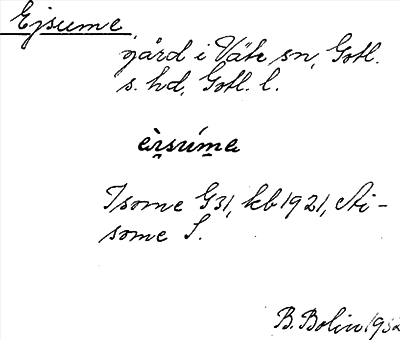 Ejsume,
gård i Väte sn, Gotl.
s. hd, Gotl. l.
èi̯súme
Isome G31, kb 1921, Ai-
some S.
B. Bolin 1932